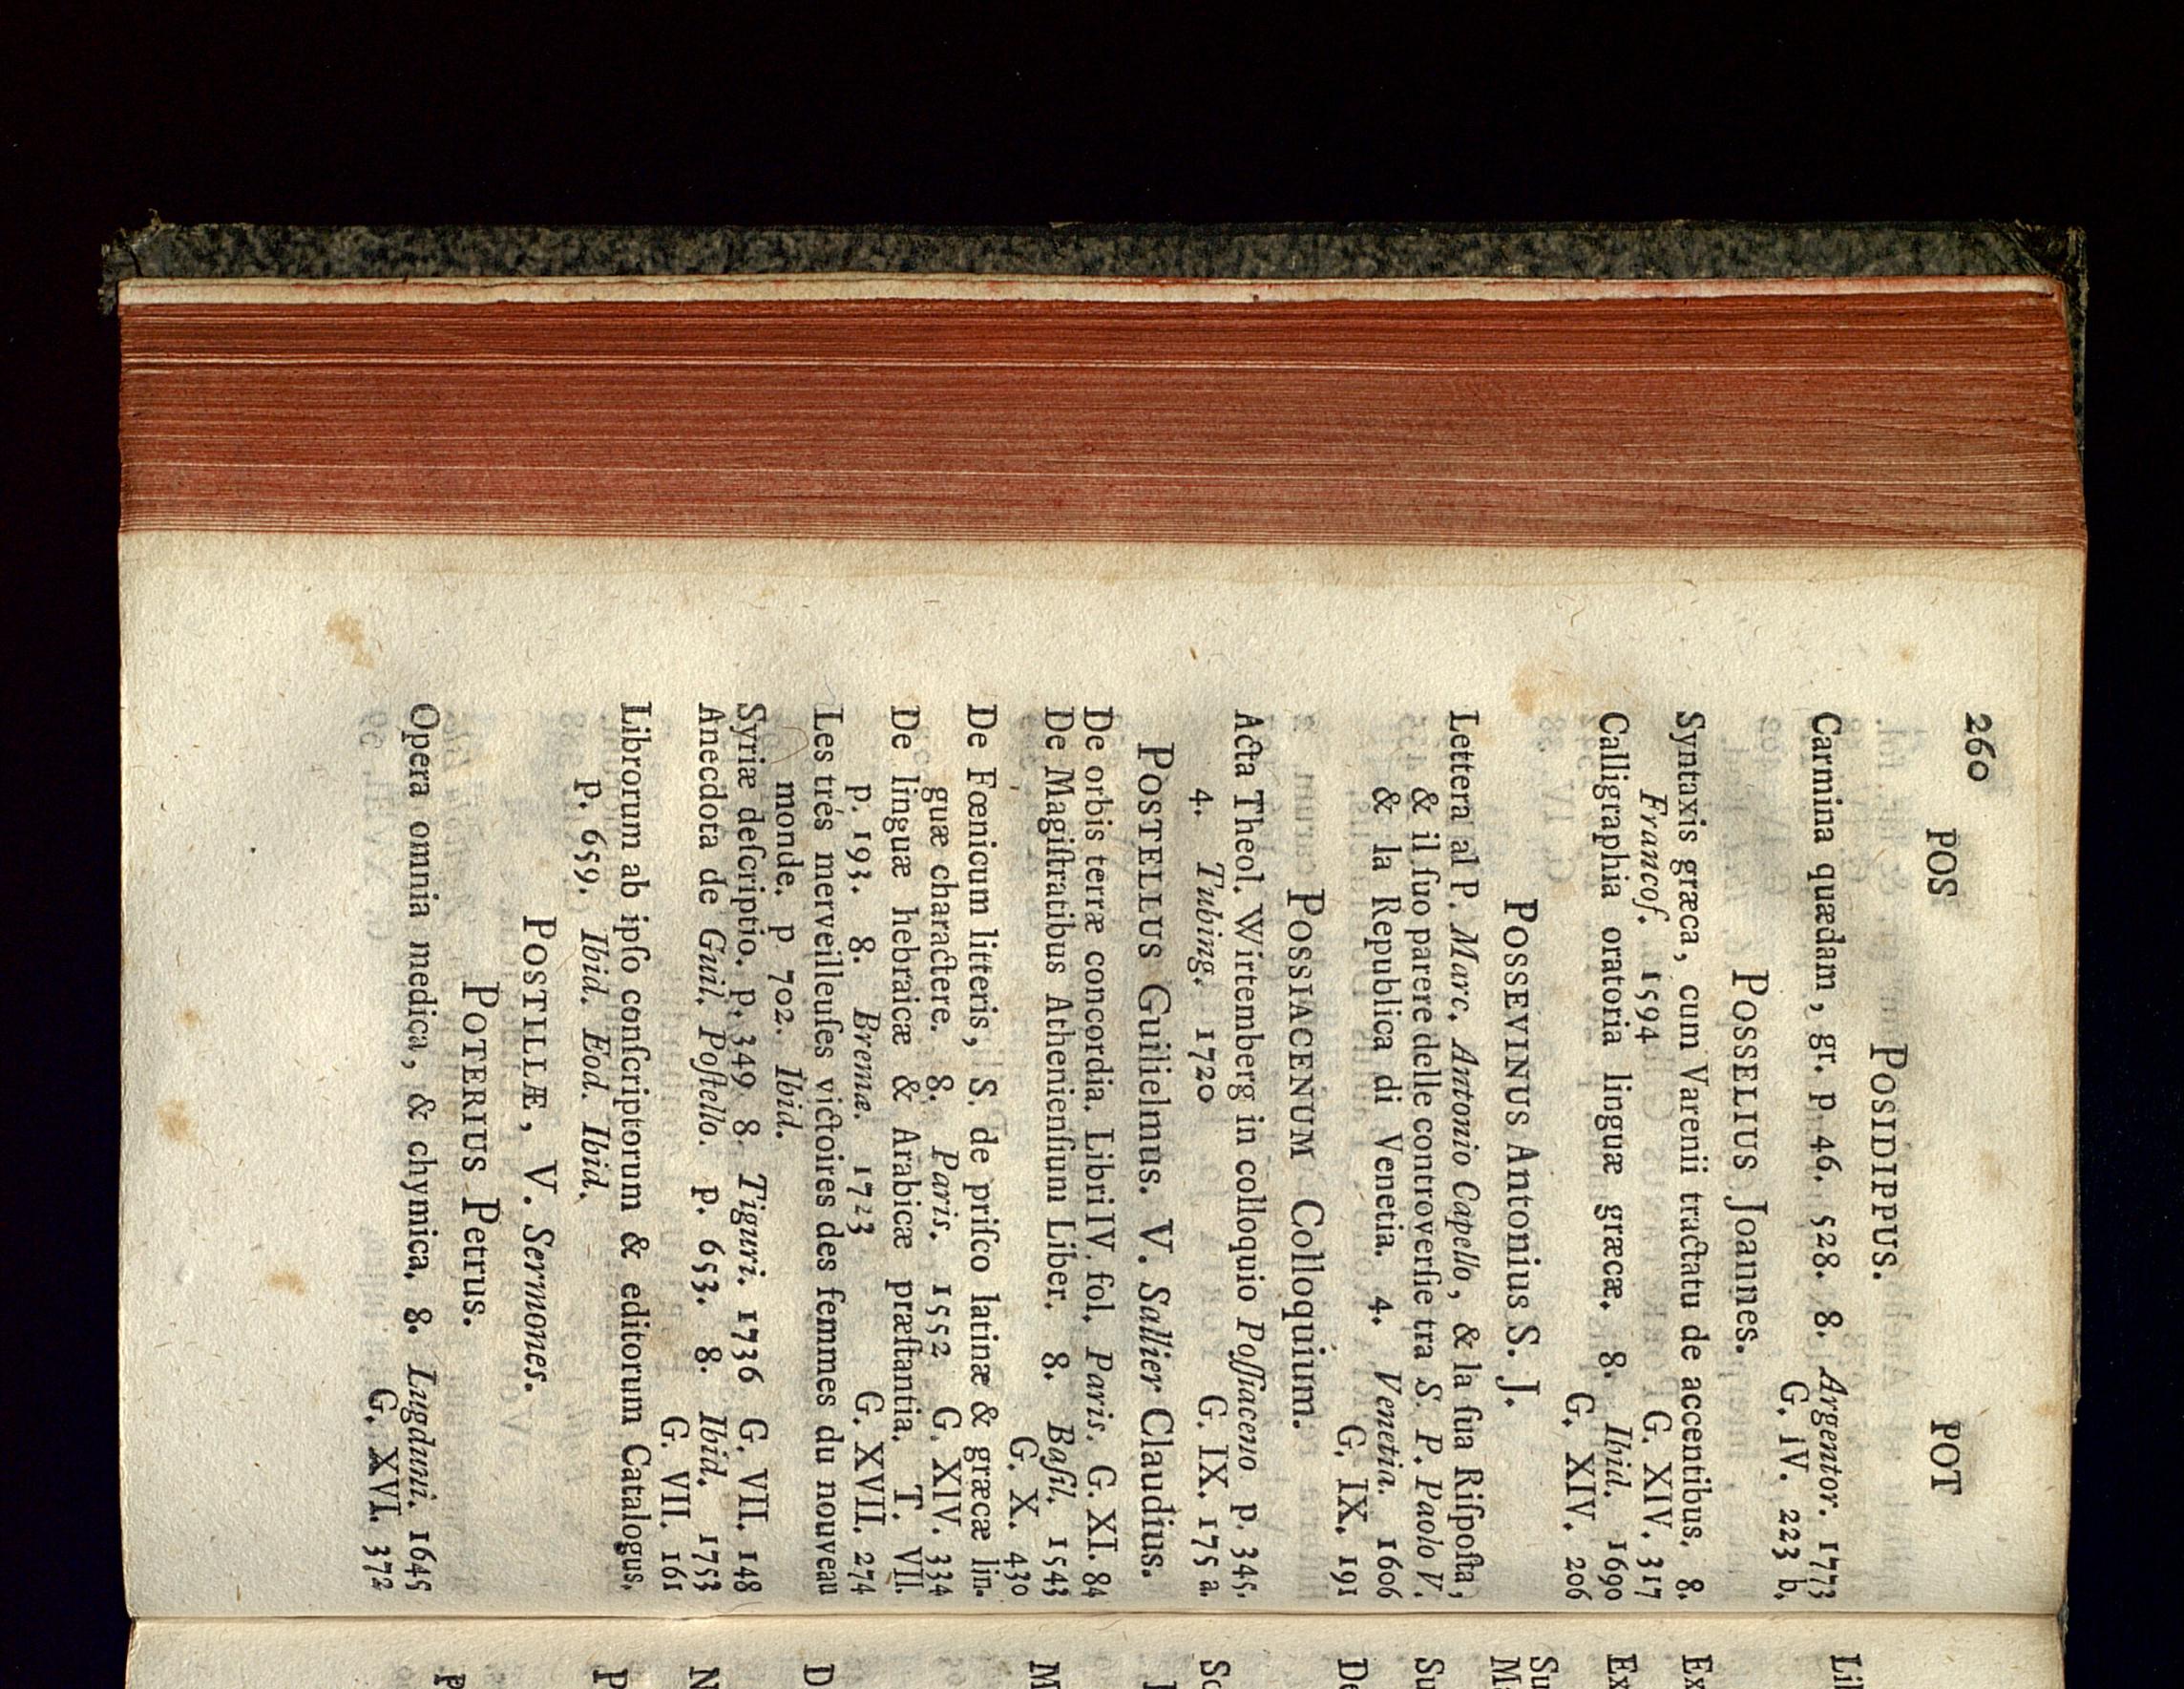 260
POS POT
POSIDIPPUS.
Carmina quædam, gr. p 46. 528. 8. Argentor. 1773
G. IV. 223 b.
POSSELIUS Joannes.
Syntaxis græca, cum Varenii tractatu de accentibus. 8.
Francof. 1594 G. XIV. 317
Calligraphia oratoria linguæ græcæ. 8. Ibid. 1690
G. XIV. 206
POSSEVINUS Antonius S. J.
Lettera al P. Marc. Antonio Capello, & la ſua Riſpoſta,
& il ſuo parere delle controverſie tra S. P. Paolo V.
& la Republica di Venetia. 4. Venetia. 1606
G. IX. 191
POSSIACENUM Colloquium.
Acta Theol. Wirtemberg in colloquio Poſſiaceno p. 345.
4. Tubing. 1720 G. IX. 175 a.
POSTELLUS Guilielmus. V. Sallier Claudius.
De orbis terræ concordia. Libri IV. fol. Paris. G. XI. 84
De Magiſtratibus Athenienſium Liber. 8. Baſil. 1543
G. X. 430
De Fœnicum litteris, S. de priſco latinæ & græcæ lin-
guæ charactere. 8. Paris. 1552 G. XIV. 334
De linguæ hebraicæ & Arabicæ præſtantia. T. VII.
p. 193. 8. Bremæ. 1723 G. XVII. 274
Les trés merveilleuſes victoires des femmes du nouveau
monde. p 702. Ibid.
Syriæ deſcriptio. p. 349 8. Tiguri. 1736 G. VII. 148
Anecdota de Guil. Poſtello. p. 653. 8. Ibid. 1753
G. VII. 161
Librorum ab ipſo conſcriptorum & editorum Catalogus.
p. 659. Ibid. Eod. Ibid.
POSTILLÆ, V. Sermones.
POTERIUS Petrus.
Opera omnia medica, & chymica. 8. Lugduni. 1645
G. XVI. 372
Lil
Ex
Ex
Su
Ma
Su
De
Sc
M
D
N
P
P